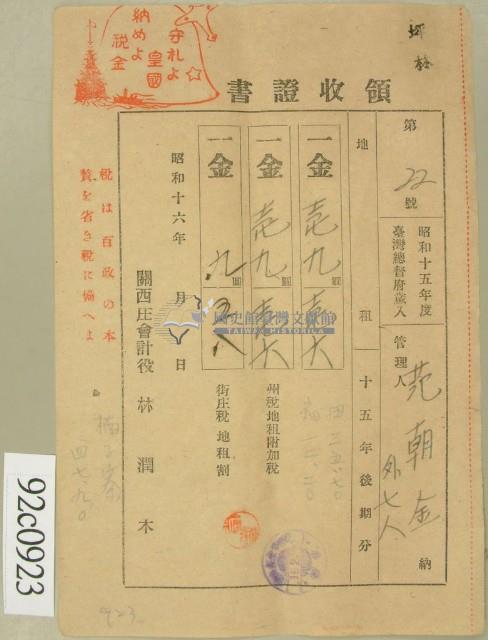 守れよ
皇國
納めよ
税金
領收證書
第 22 號
昭和十五年度
臺灣總督府歲入
管理人 范朝金 外七人 納
地租 十五年後期分
一金 壱九圓壱六
一金 壱九圓壱六
州稅地租附加稅
一金 九圓五八
街庄稅地租割
昭和十六年 月 八日
關西庄會計役 林潤木
税は百政の本
贅を省き税に備へよ
國史館臺灣文獻館
TAIWAN HISTORICA
四七九〇
92c0923
923